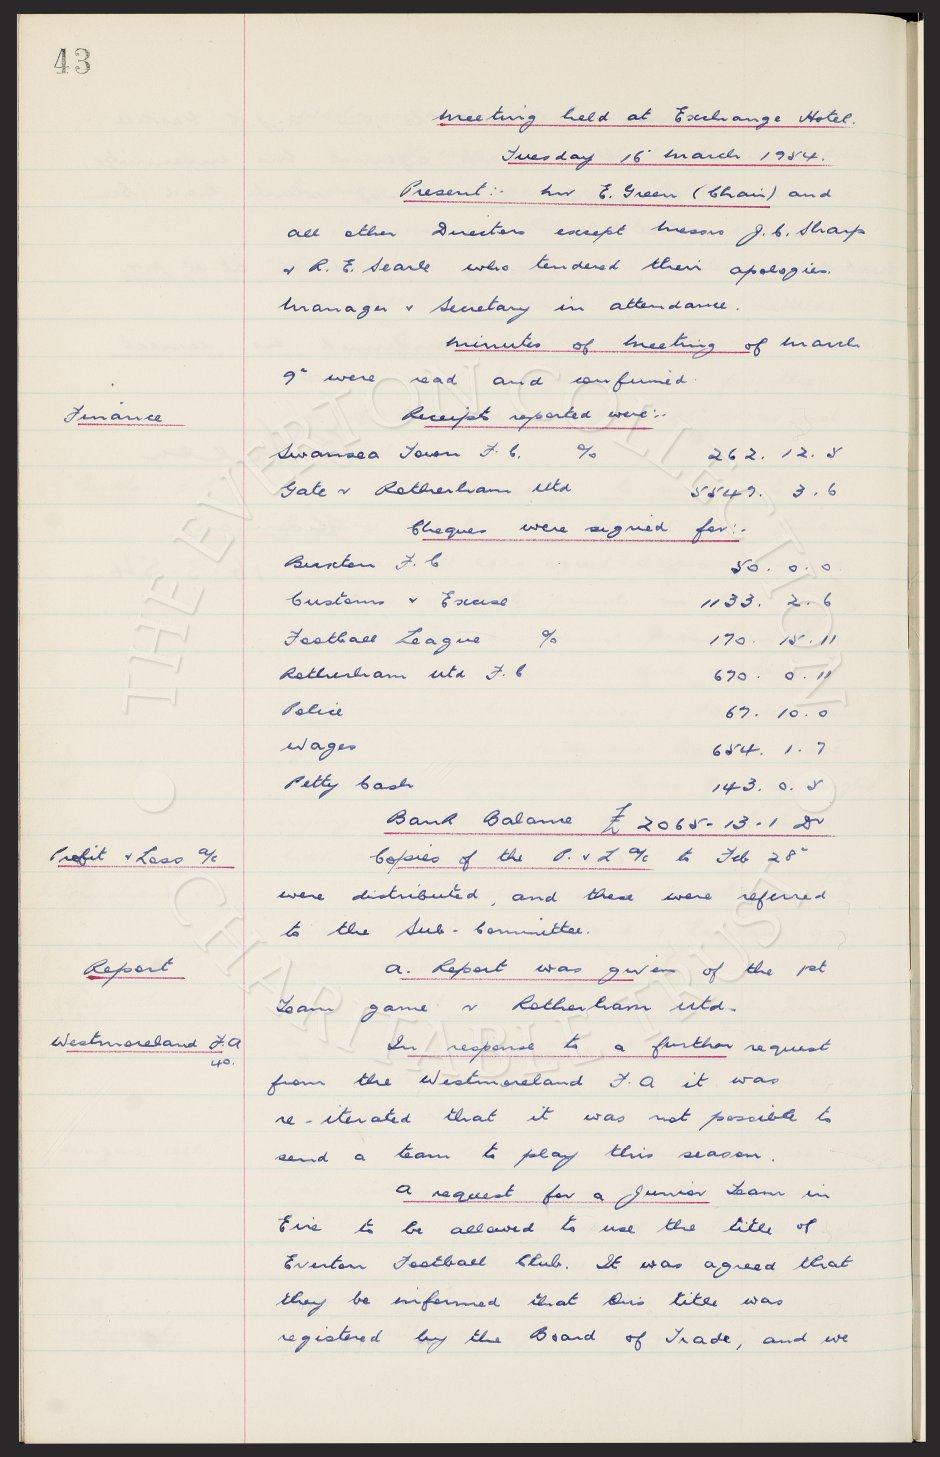 43
Meeting held at Exchange Hotel.
Tuesday 16 March 1954.
Present:- Mr E. Green (Chair) and
all other Directors except Messrs J. C. Sharp
& R. E. Searle who tendered their apologies.
Manager & Secretary in attendance.
Minutes of Meeting of March
9" were read and confirmed.
Finance Receipts reported were:-
Swansea Town F. C. a/c 262. 12. 5
Gate v Rotherham Utd 5549. 3. 6
Cheques were signed for:-
Buxton F. C 50. 0. 0
Customs & Excise 1133. 2. 6
Football League a/c 170. 15. 11
Rotherham Utd F. C 670. 0. 11
Police 67. 10. 0
Wages 654. 1. 7
Petty Cash 143. 0. 5
Bank Balance £ 2065-13-1 Dr
Profit & Loss a/c Copies of the P. & L a/c to Feb 28"
were distributed, and these were referred
to the Sub-Committee.
Report A. Report was given of the 1st
Team game v Rotherham Utd.
Westmoreland F.A In response to a further request
40.
from the Westmoreland F. A it was
re-iterated that it was not possible to
send a team to play this season.
A request for a Junior Team in
Eire to be allowed to use the title of
Everton Football Club. It was agreed that
they be informed that this title was
registered by the Board of Trade, and we
THE EVERTON COLLECTION
CHARITABLE TRUST